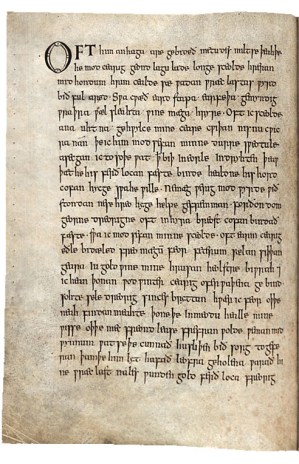 OFT him anhaga are gebideð metudes miltse þeah þe
he mod cearig geond lagu lade longe sceolde hreran
mid hondum hrim cealde sæ wadan wræc lastas wyrd
bið ful aræd · Swa cwæð eard stapa earfeþa gemyndig
wraþra wæl sleahta wine mæga hryre · Oft ic sceolde
ana uhtna gehwylce mine ceare cwiþan nis nu cwic
ra nan þe ic him mod sefan minne durre sweotule
asecgan ic to soþe wat þ biþ in eorle indryhten þeaw
þæt he his ferð locan fæste binde healdne his hord
cofan hycge swa he wille · Ne mæg werig mod wyrde wið
stondan ne se hreo hyge helpe gefremman · forðon dom
georne dreorigne oft in hyra breost cofan bindað
fæste · swa ic mod sefan minne sceolde · oft earm cearig
eðle bidæled freo mægum feor · feterum sælan siþþan
geara iu gold wine mine hrusan heolstre biwrah ⁊
ic hean þonan wod winter cearig ofer waþena ge bind
sohte sele dreorig sinces bryttan hwær ic feor oþþe
neah findan meahte þone þe in meodu healle mine
wisse oþþe mec freond lease frefran wolde weman mid
wynnum wat se þe cunnað hu sliþen bið sorg to gefe
ran þam þe him lyt hafað leofra geholena warað hi
ne wræc last nales wunden gold ferð loca freorig